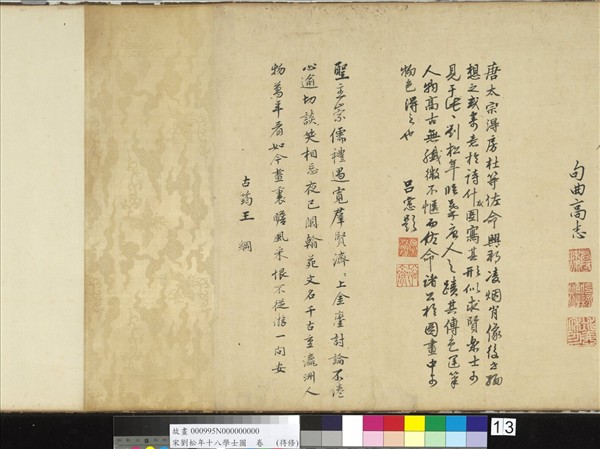 句曲高志
唐太宗得房杜等佐命興新凌烟肖像後之緬
想之或贊美於詩什或圖寫其形似求賢無士于
見于此劉松年臨摹唐人之蹟其傳色運筆
人物高古無纖微不愜而佐命諸公於圖畫中可
物色得之也
呂憲題
聖主崇儒禮遇寬羣賢濟濟上金鑾討論不倦
心逾切談笑相忘夜已闌翰苑文名千古重瀛洲人
物萬年看如今畫裏瞻風采恨不從游一問安
古筠王綱
故畫 000995N000000000
宋劉松年十八學士圖 卷 (待修)
13